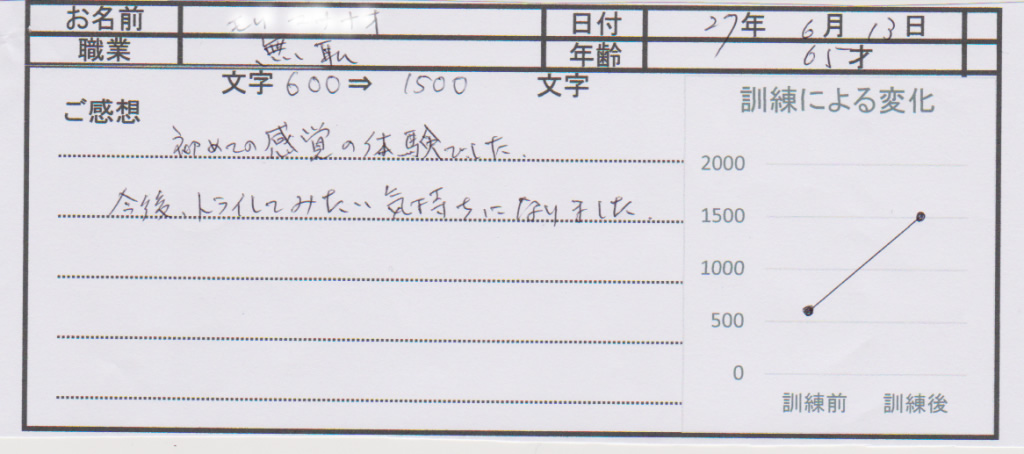 お名前 日付 27年 6月 13日
職業 無職 年齢 65才
文字 600⇒ 1500 文字
ご感想
初めての感覚の体験でした。
今後、トライしてみたい気持ちになりました。
訓練による変化
2000
1500
1000
500
0
訓練前 訓練後